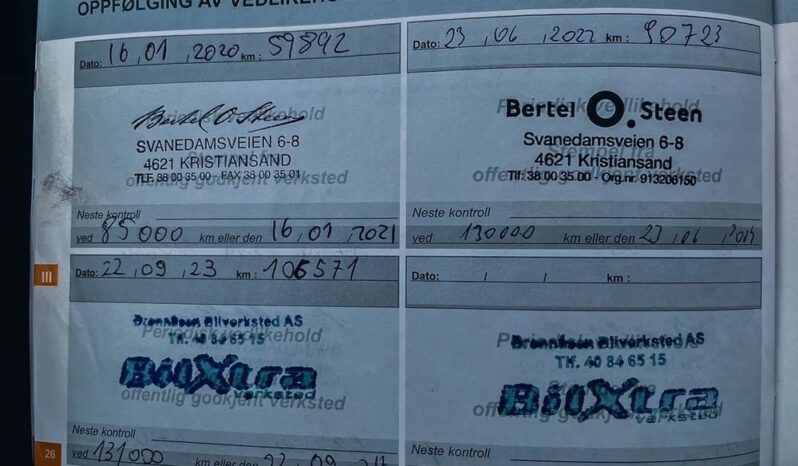 OPPFØLGING AV VEDLIKEHOL
Dato: 16, 01, 2020 km: 59892
Periodisk vedlikehold
Bertel O. Steen
SVANEDAMSVEIEN 6-8
4621 KRISTIANSAND
TLF. 38 00 35 00 - FAX 38 00 35 01
offentlig godkjent verksted
Neste kontroll
ved 85000 km eller den 16, 01, 2021
Dato: 23, 06, 2022 km: 90723
Periodisk vedlikehold
Bertel O. Steen
Svanedamsveien 6-8
Stempel fra
4621 Kristiansand
offentlig godkjent verksted
Tlf: 38 00 35 00 - Org.nr. 913206150
Neste kontroll
ved 130000 km eller den 23, 06
III
Dato: 22, 09, 23 km: 106571
Brennåsen Bilverksted AS
Periodisk vedlikehold
Tlf. 40 84 65 15
BilXtra
verksted
offentlig godkjent verksted
Neste kontroll
ved 131000 km eller den 22 09
Dato: / / km:
Brennåsen Bilverksted AS
Periodisk vedlikehold
Tlf. 40 84 65 15
BilXtra
verksted
offentlig godkjent verksted
Neste kontroll
26